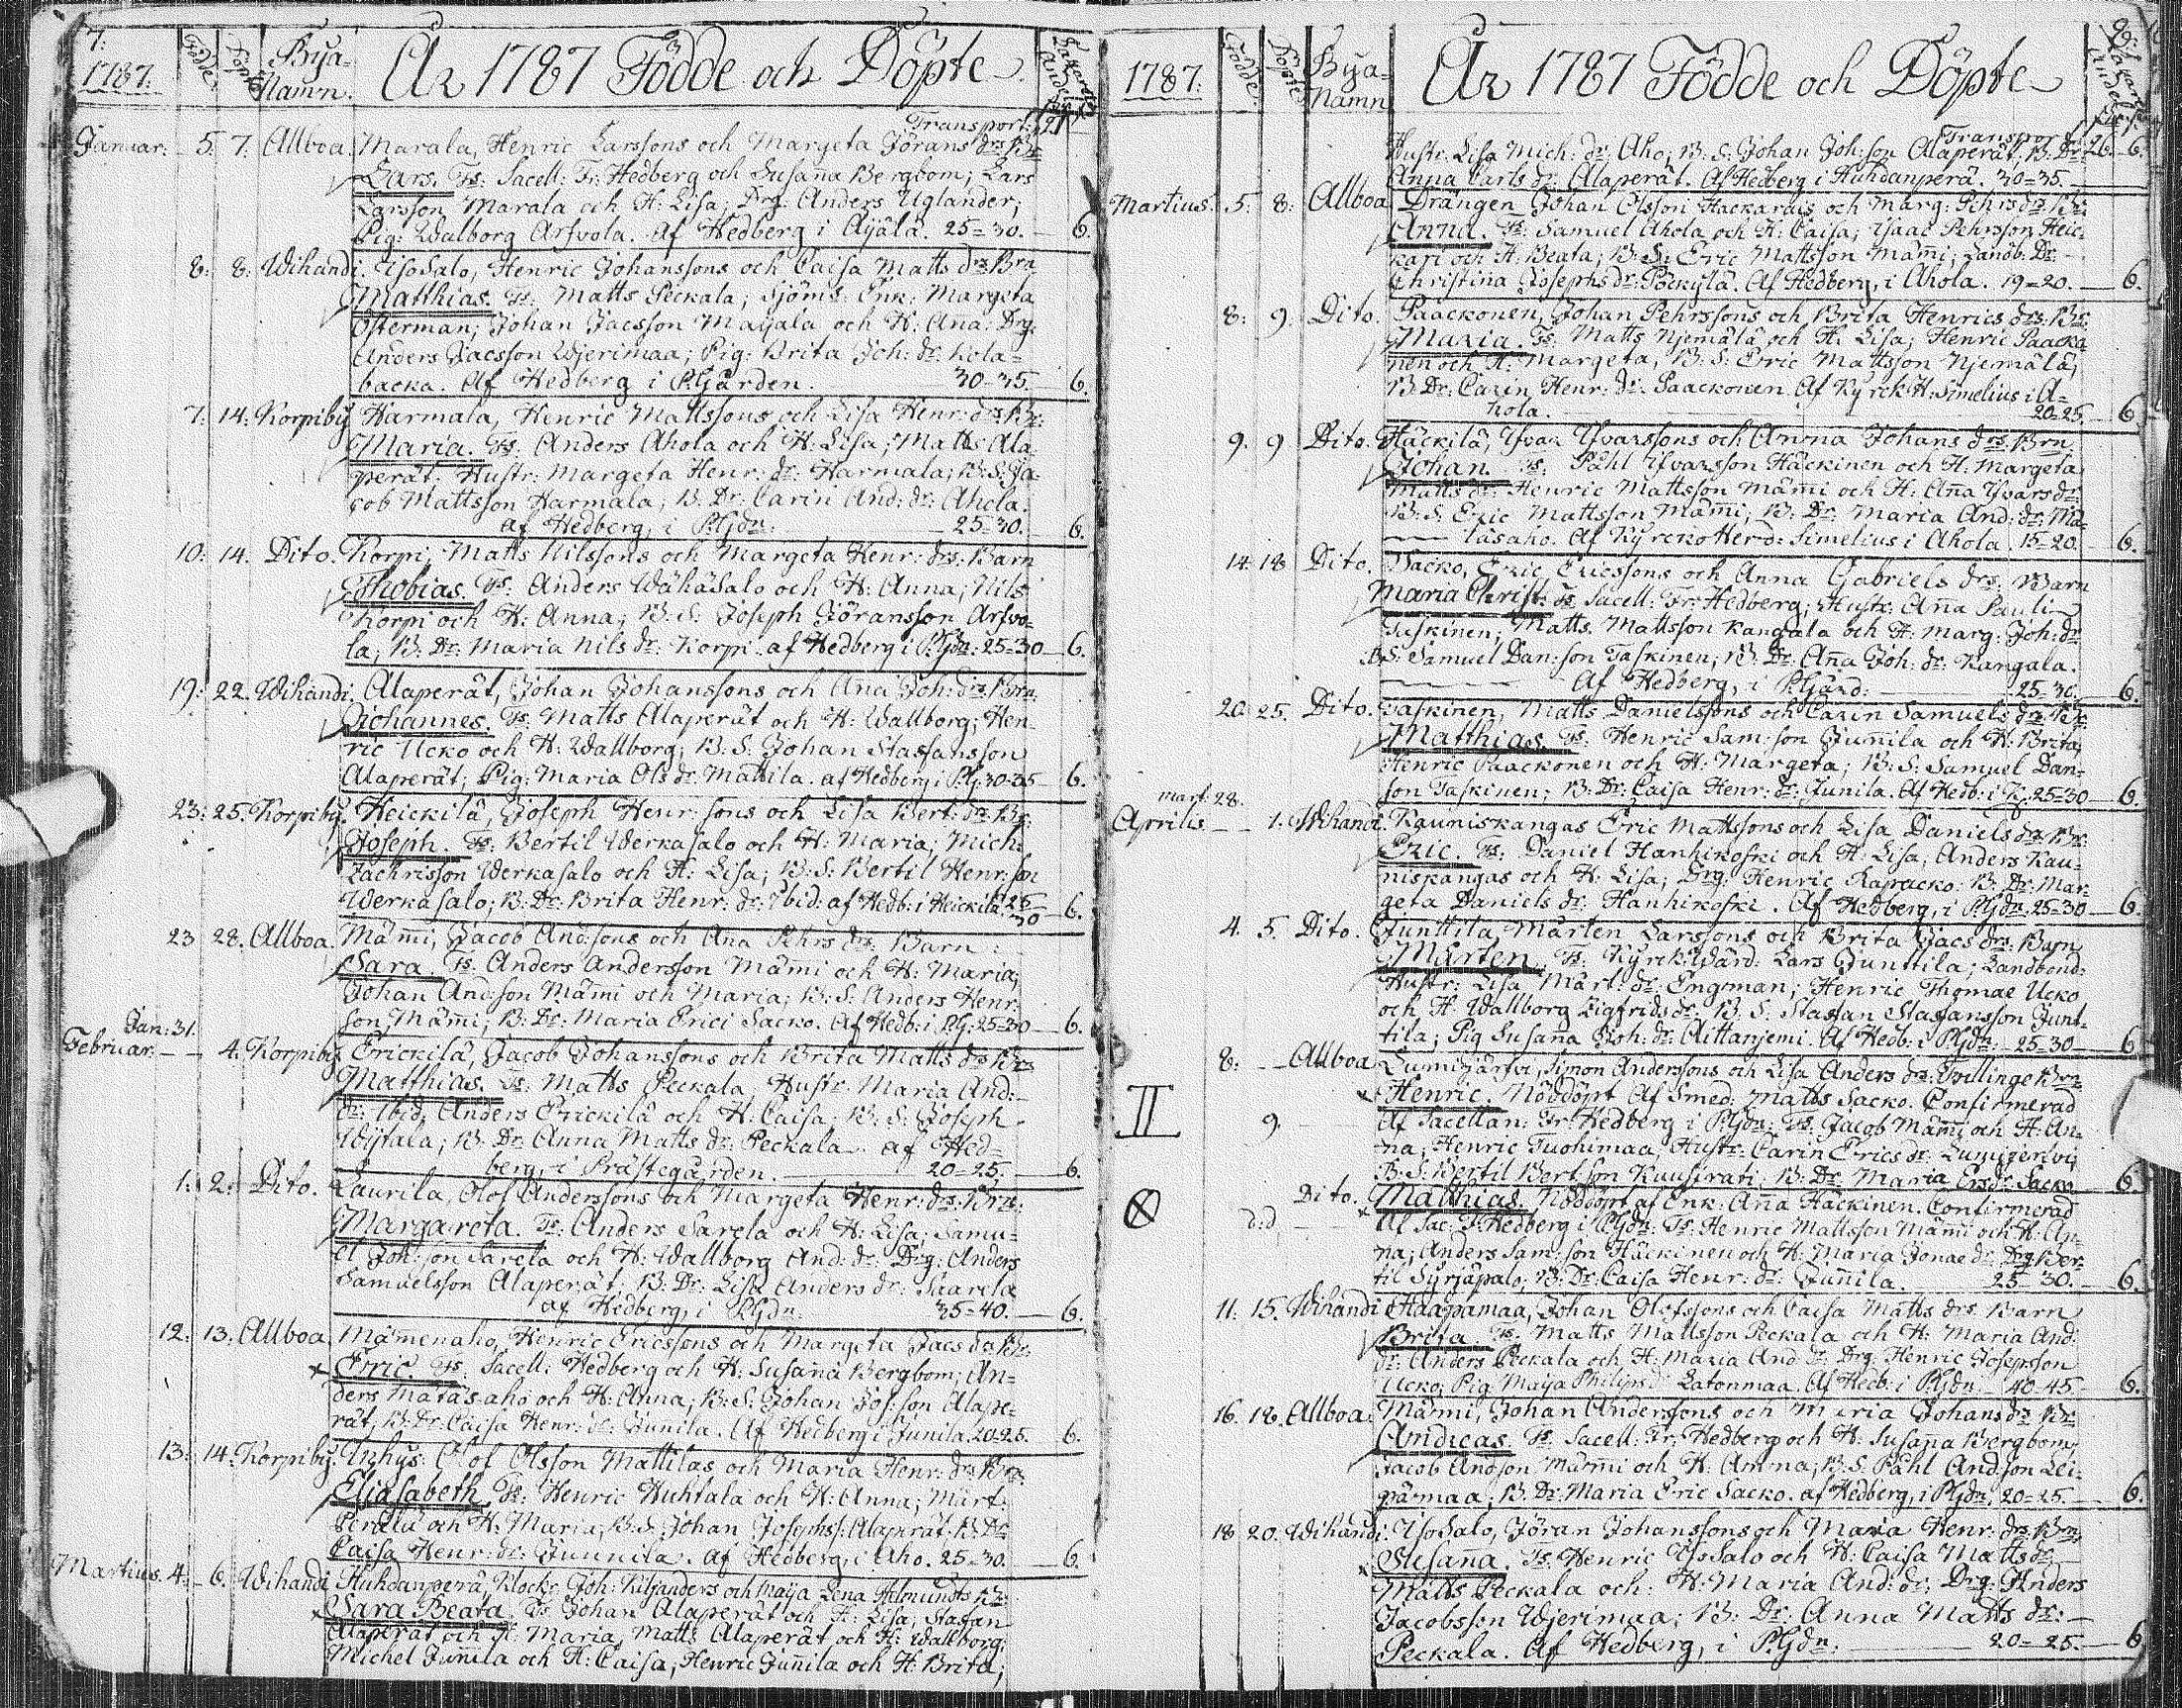 7.
1787.
Födde.
Döpte
Bya-
Namn.
År 1787 Födde och Döpte
Transport.
Januar: 5. 7. Allboa. Marala, Henric Larssons och Margeta Jörans drs Br:
Lars. Fs: Sacell: Fr: Hedberg och Susan̄a Bergbom; Lars
Larsson Marala och H: Lisa; Drg: Anders Uglander;
Pig: Walborg Arfvola. af Hedberg i Ajälä. 25=30. 6.
8: 8: Wihandi. YsoSalo, Henric Johanssons och Caisa Matts drs Brn
Matthias. Fs: Matts Peckala; Sjöm̄s: Enk: Margeta
Österman; Johan Jacsson Majala och H: An̄a: Drg:
Anders Jacsson Wjerimaa; Pig: Brita Joh: dr: Kola=
backa. Af Hedberg i P:Gården. 30=35. 6.
7: 14: Korpiby Harmala, Henric Mattssons och Lisa Henr: drs: Br:
Maria. Fs: Anders Ahola och H: Lisa; Matts Ala
perät; Hustr: Margeta Henr: dr: Harmala; B: S: Ja=
cob Mattsson Harmala; B: Dr: Carin And: dr: Ahola.
af Hedberg, i P:Gdn: 25=30. 6.
10: 14. Dito. Korpi, Matts Nilssons och Margeta Henr: drs: Barn
Thobias. Fs: Anders WähäSalo och H: Anna; Nils
Korpi och H: Anna; B: S: Joseph Göransson Arfvo=
la; B: Dr: Maria Nils dr: Korpi. af Hedberg i P:Gdn: 25=30 6.
19: 22. Wihandi. Alaperät, Johan Johanssons och An̄a Joh: drs Brn
Johannes. Fs: Matts Alaperät och H: Wallborg; Hen=
ric Ucko och H: Wallborg; B: S: Johan Staffansson
Alaperät; Pig: Maria Ols dr: Mattila. af Hedberg i P:G: 30=35 6.
23: 25. Korpiby. Heickilä, Joseph Henr: sons och Lisa Bert: drs Br:
Joseph. Fs: Bertil Werkasalo och H: Maria; Mich:
Zachrisson Werkasalo och H: Lisa; B: S: Bertil Henr: son
Werkasalo; B: Dr: Brita Henr: dr: Ibid: af Hedb: i Heickilä 25=30 6.
23 28. Allboa. Mäm̄i, Jacob And:sons och An̄a Pehrs drs Barn:
Sara. Fs: Anders Andersson Mäm̄i och H: Maria;
Johan And:son Mäm̄i och Maria; B: S: Anders Henr:
son Mäm̄i; B: Dr: Maria Erici Sacko. Af Hedb: i P:G: 25=30 6.
Jan: 31.
Februar: 4. Korpiby Erickilä, Jacob Johanssons och Brita Matts drs Brn
Matthias. Fs: Matts Peckala, Hustr: Maria And:
dr: Ibid; Anders Erickilä och H: Caisa; B: S: Joseph
Wijtala; B: Dr: Anna Matts dr: Peckala. af Hed=
berg, i Prästegården. 20=25. 6.
1: 2: Dito. Laurila, Olof Anderssons och Margeta Henr: drs: Brn:
Margareta. Fs: Anders Sarela och H: Lisa; Samu=
el Joh:son Sarela och H: Wallborg And: dr: Drg: Anders
Samuelsson Alaperät; B: Dr: Lisa Anders dr: Saarela
af Hedberg, i P:Gdn: 35=40. 6.
12: 13. Allboa. Mäm̄enaho, Henric Ericssons och Margeta Jacs drs Br:
Eric. Fs: Sacell: Hedberg och H: Susan̄a Bergbom; An=
ders Matas-aho och H: Anna; B: S: Johan Jos:son Alape=
rät; B: Dr: Caisa Henr: dr: Junila. Af Hedberg i Junila. 20=25. 6.
13: 14: Korpiby. Inhys: Olof Olsson Mattilas och Maria Henr: drs Brn
Eliasabeth. Fs: Henric Huhtala och H: Anna; Mårt:
Perala och H: Maria; B: S: Johan Josephs: Alaperät. B: Dr:
Caisa Henr: dr: Junnila. af Hedberg, i Aho. 25=30. 6.
Martius. 4. 6. Wihandi Huhdanperä, Klock: Joh: Kiljanders och Maija Lena Almunds Br:
Sara Beata. Fs: Johan Alaperät och H: Lisa; Stafan
Alaperät och H: Maria, Matts Alaperät och H: Wallborg,
Michel Jun̄ila och H: Caisa, Henric Jun̄ila och H: Brita;
1787:
Födde.
Döpte
Bya=
Namn
År 1787 Födde och Döpte
Transpor 26. 6.
Hustr: Lisa Mich: dr: Aho; B: S: Johan Joh:son Alaperät; B: Dr:
Anna Carls dr: Alaperät. Af Hedberg i Huhdanperä. 30=35.
Martius. 5: 8: Allboa Drängen Johan Olsson Hackarais och Marg: Pehrs drs Br:
Anna. Fs: Samuel Ahola och H: Caisa; Isaac Pehrsson Heic=
kari och H: Beata; B: S: Eric Mattsson Mäm̄i; Landb: Dr:
Christina Josephs dr: Pöckylä. Af Hedberg, i Ahola. 19=20. 6.
8: 9. Dito. Paackonen, Johan Pehrssons och Brita Henrics drs: Br:
Maria. Fs: Matts Njemälä och H: Lisa; Henric Paacko
nen och H: Margeta; B: S: Eric Mattsson Njemälä;
B: Dr: Carin Henr: dr: Paackonen. Af KyrckH: Simelius i A=
hola. 20=25. 6
9. 9 Dito. Häckilä, Yfvar Yfvarssons och Anna Johans drs Brn
Johan. Fs: Påhl Yfvarsson Häckinen och H: Margeta
Matts dr: Henric Mattsson Mäm̄i och H: An̄a Yfvars dr:
B: S: Eric Mattsson Mäm̄i; B: Dr: Maria And: dr: Ma=
tasaho. Af KyrckoHerd: Simelius i Ahola. 15=20. 6.
14 18 Dito. Sacko, Eric Ericssons och Anna Gabriels drs: Barn
Maria Christ: Fs: Sacell: Fr: Hedberg; Hustr: An̄a Paulin
Taskinen; Matts Mattsson Kangala och H: Marg: Joh: dr:
B: S: Samuel Dan:son Taskinen; B: Dr: An̄a Joh: dr: Kangala.
Af Hedberg, i P:Gård: 25=30. 6.
20 25. Dito. Taskinen, Matts Danielssons och Carin Samuels drs Br:
Matthias. Fs: Henric Sam:son Jun̄ila och H: Brita;
Henric Paackonen och H: Margeta; B: S: Samuel Dan=
son Taskinen; B: Dr: Caisa Henr: dr: Junila. Af Hedb: i 25=30 6.
mart. 28.
Aprilis 1. Wihandi. Kauniskangas Eric Mattssons och Lisa Daniels drs Br:
Eric. Fs: Daniel Hanhikoski och H: Lisa; Anders Kau=
niskangas och H: Lisa; Drg: Henric Rapacko. B: Dr: Mar=
geta Daniels dr: Hanhikoski. Af Hedberg, i P:Gdn. 25=30 6.
4. 5. Dito. Junttila, Mårten Larssons och Brita Jacs drs: Barn
Mårten. Fs: Kyrck:Wärd: Lars Junttila; Landbond:
Hustr: Lisa Mårt: dr: Engman; Henric Thomae Ucko
och H: Wallborg Sigfrids dr: B: S: Staffan Staffansson Junt=
tila; Pig Susan̄a Joh: dr: Aittanjemi. Af Hedb: i P:Gdn: 25=30 6
8: Allboa Lumijärfvi, Simon Anderssons och Lisa Anders drs: Tvillinge Brn
II Henric. Nöddöpt Af Smed: Matts Sacko. Confirmerad
9. Af Sacellan: Fr: Hedberg i P:Gdn: Fs: Jacob Mäm̄i och H: An=
na; Henric Tuohimaa; Hustr: Carin Erics dr:
B: S: Bertil Bertson Kuusirati; B: Dr: Maria Ers dr: Sacko 6.
⊗ Dito. Matthias. Nöddöpt af Enk: An̄a Häckinen. Confirmerad
d:d Af Sac: F: Hedberg i P:Gdn: Fs: Henric Mattsson Mäm̄i och H: An=
na; Anders Sam:son Häckinen och H: Maria Jonae dr: Drg: Ber=
til Syrjäpalo; B: Dr: Caisa Henr: dr: Jun̄ila. 25=30. 6.
11: 15. Wihandi Haapamaa, Johan Olofssons och Caisa Matts drs Barn
Brita. Fs: Matts Mattsson Peckala och H: Maria And:
dr: Anders Peckala och H: Maria And: dr: Drg: Henric Josepsson
Ucko; Pig: Maija Philips dr: Latonmaa. Af Hedb: i P:Gdn. 40=45 6.
16. 18. Allboa: Mäm̄i, Johan Anderssons och Maria Johans drs Br:
Andreas. Fs: Sacell: Fr: Hedberg och H: Susan̄a Bergbom;
Jacob And:son Mäm̄i och H: Anna; B: S: Påhl And:son Lei=
pämaa; B: Dr: Maria Eric Sacko. af Hedberg, i P:Gdn. 20=25. 6.
18 20. Wihandi. YsoSalo, Jöran Johanssons och Maria Henr: drs: Brn
Susan̄a. Fs: Henric YsoSalo och H: Caisa Matts dr:
Matts Peckala och H: Maria And: dr: Drg: Anders
Jacobsson Wjerimaa; B: Dr: Anna Matts dr:
Peckala. Af Hedberg, i P:Gdn: 20=25. 6